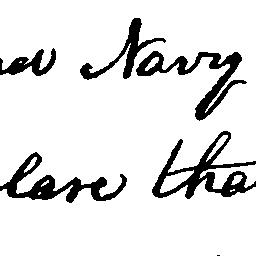 nd Navy
lare tha